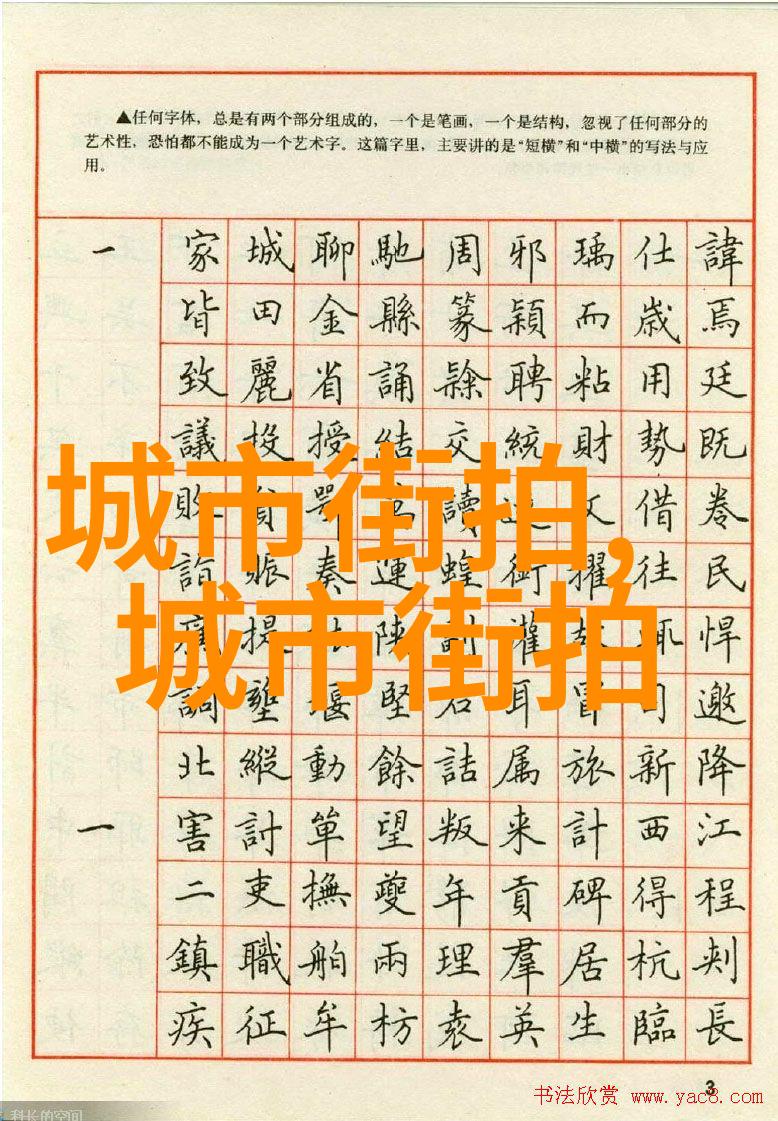 ▲任何字体，总是有两个部分组成的，一个是笔画，一个是结构，忽视了任何部分的
艺术性，恐怕都不能成为一个艺术字。这篇字里，主要讲的是“短横”和“中横”的写法与应
用。
一 家城聊馳周邪瑀仕諱
皆田金縣篆穎而歲焉
致麗省誦隸聘粘用廷
議投授結交統財勢既
城市街拍,
讀文借卷
詣賑奏連蝗銜擢往民
城市街拍
提灌悍
調堰堅石耳冒司邀
北縱動餘詰属旅新降
一 害討單望叛来計西江
二吏撫夔年貢碑得程
鎮職舶兩理羣居杭刾
疾征牟枋袁英生臨長
3
书法欣赏 www.yac8.com
科长的空间